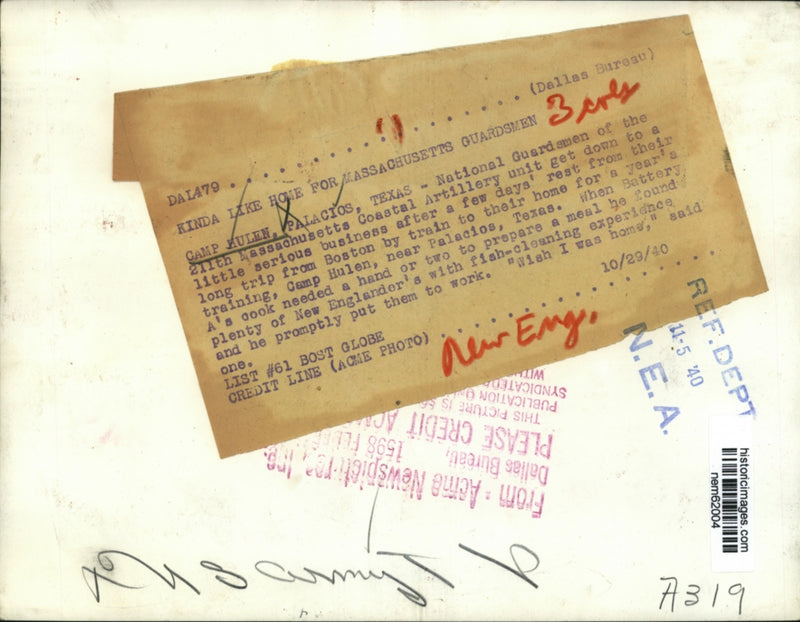 DAL479 . . . . . . . . . . . . . . . . . . . . (Dallas Bureau)
KINDA LIKE HOME FOR MASSACHUSETTS GUARDSMEN
3 cols
CAMP HULEN, PALACIOS, TEXAS - National Guardsmen of the
211th Massachusetts Coastal Artillery unit get down to a
little serious business after a few days' rest from their
long trip from Boston by train to their home for a year's
training, Camp Hulen, near Palacios, Texas. When Battery
A's cook needed a hand or two to prepare a meal he found
plenty of New Englander's with fish-cleaning experience
and he promptly put them to work. "Wish I was home," said
one.
LIST #61 BOST GLOBE 10/29/40
CREDIT LINE (ACME PHOTO) . . . . . . . . . . . . . . . . . . . .
New Eng.
REF. DEPT
11-5 '40
N. E. A.
From - Acme Newspictures Inc.
Dallas Bureau,
PLEASE CREDIT ACM
THIS PICTURE IS
PUBLICATION
SYNDICATED
historicimages.com
nem62004
U S Army
A319